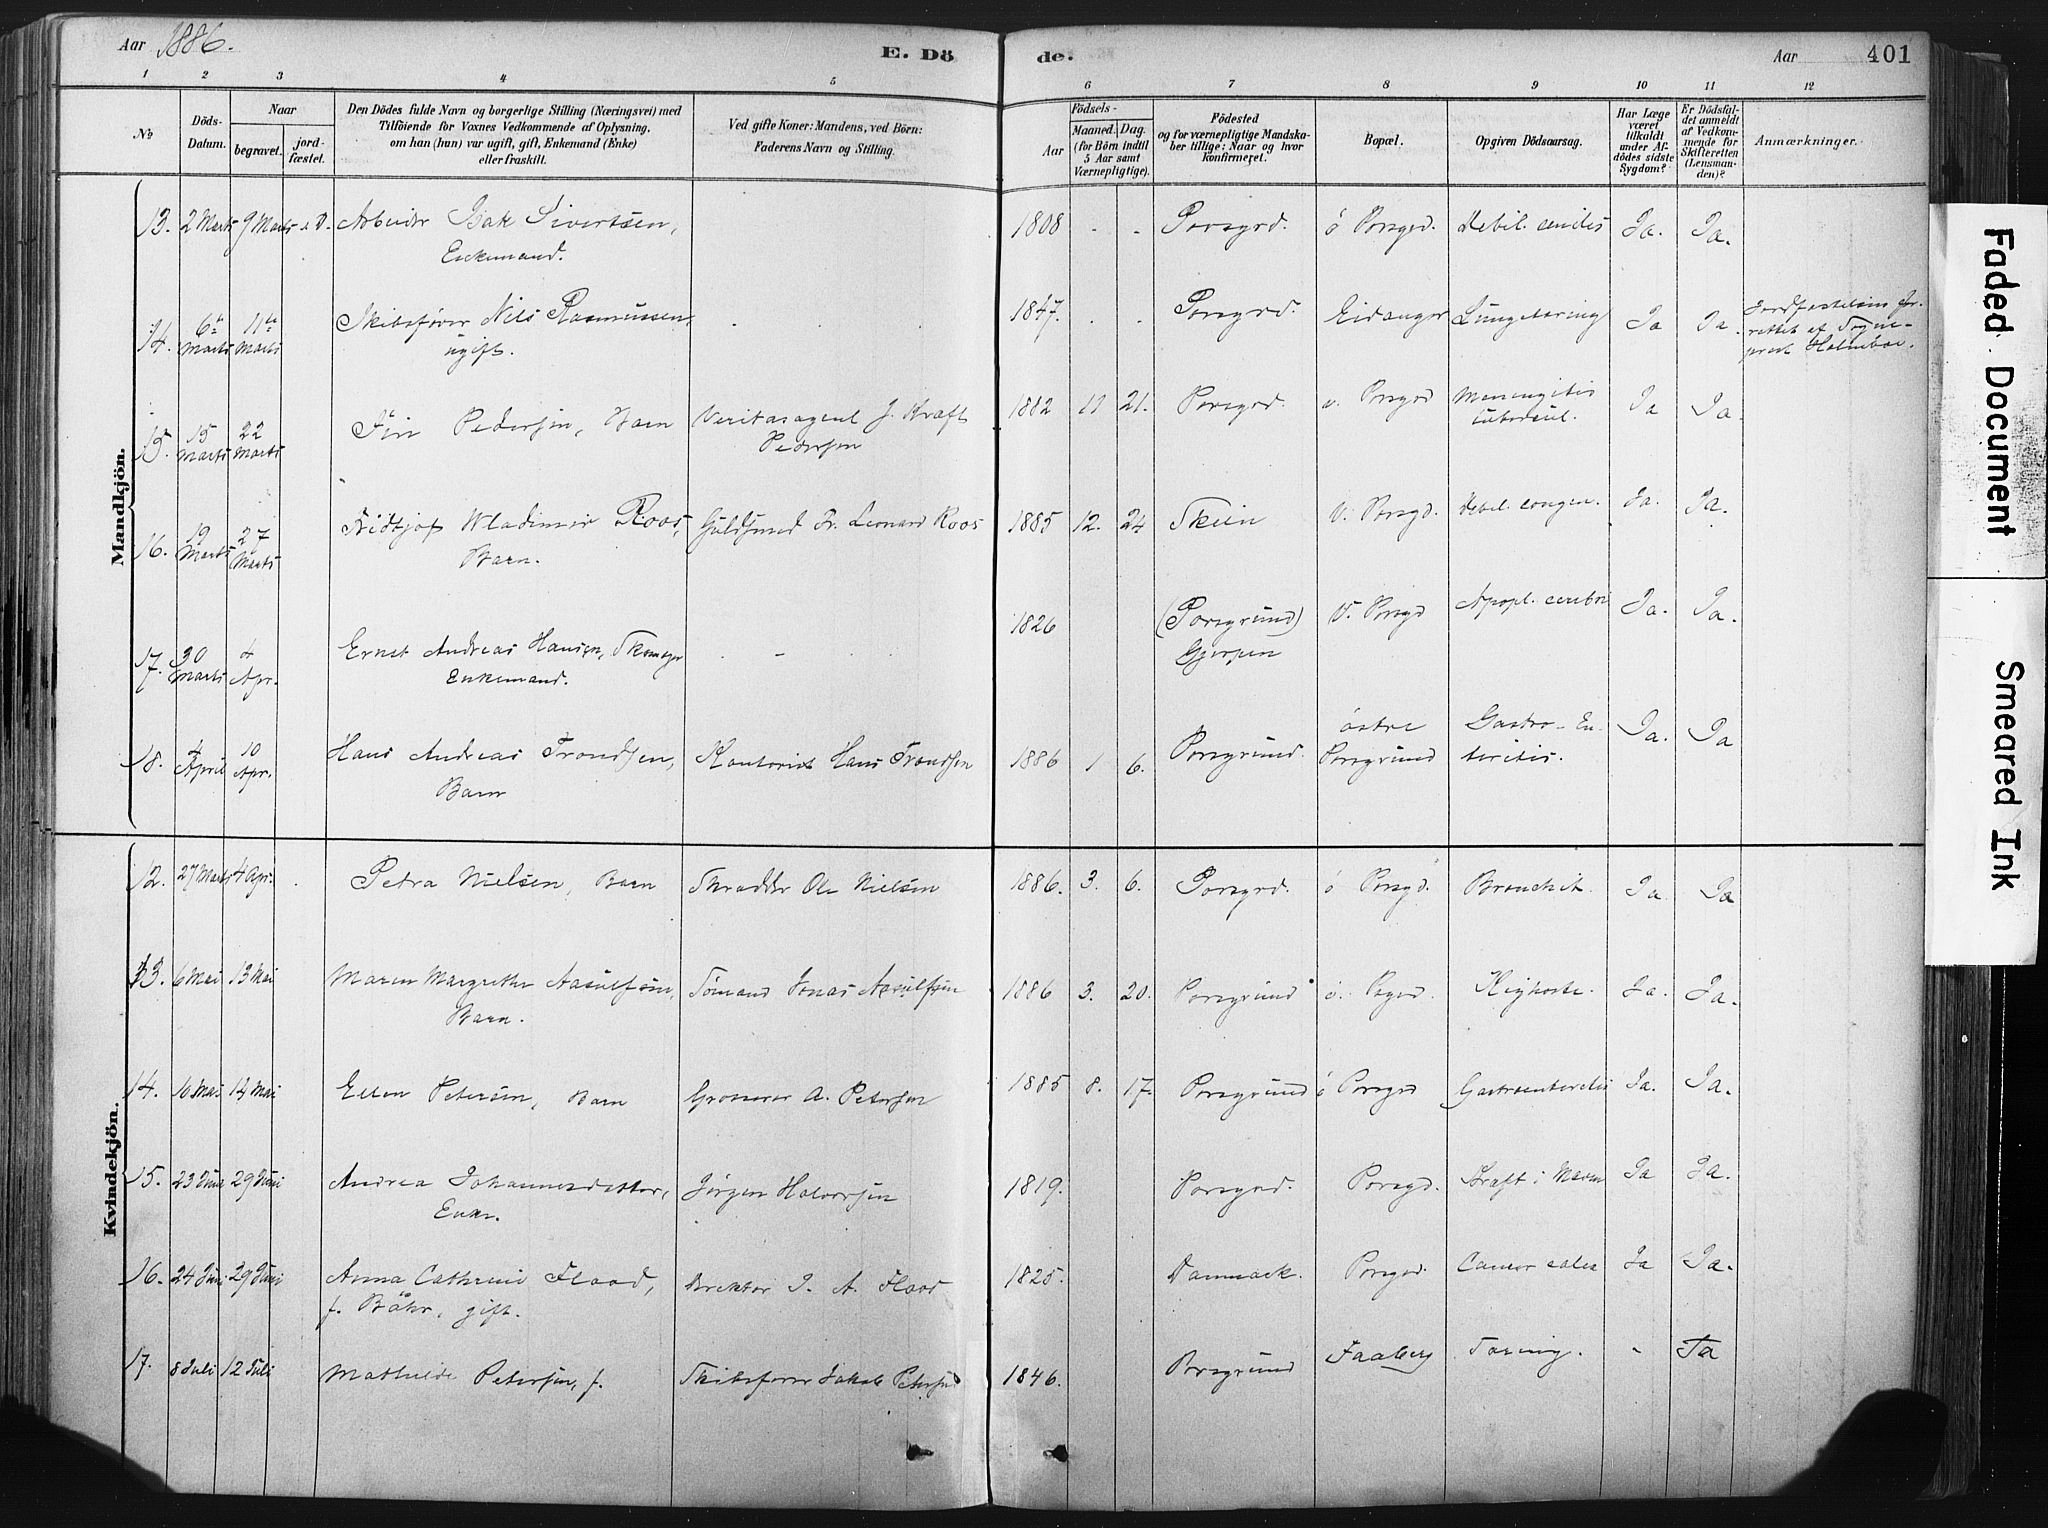 Aar 1886. E. Dö de. Aar 401
1 2 3 4 5 6 7 8 9 10 11 12
No
Döds-Datum.
Naar
begravet.
jord-fæstet.
Den Dödes fulde Navn og borgerlige Stilling (Næringsvei) med
Tilföiende for Voxnes Vedkommende af Oplysning,
om han (hun) var ugift, gift, Enkemand (Enke)
eller fraskilt.
Ved gifte Koner: Mandens, ved Börn:
Faderens Navn og Stilling.
Födsels-
Aar
Maaned. Dag.
(for Börn indtil
5 Aar samt
Værnepligtige).
Födested
og for værnepligtige Mandska-
ber tillige: Naar og hvor
konfirmeret.
Bopæl.
Opgiven Dödsaarsag.
Har Læge
været
tilkaldt
under Af-
dödes sidste
Sygdom?
Er Dödsfal-
det anmeldt
af Vedkom-
mende for
Skifteretten
(Lensman-
den)?
Anmærkninger.
Mandkjön.
13. 2 Marts 9 Marts Arbeider Isak Sivertsen, 1808 - - Porsgrd. ö Porsgrd. Debil. senilis Ja. Ja.
Enkemand.
14. 6te Marts 11te Marts Skibsfører Nils Rasmussen, 1847. Porsgrd. Eidanger Lungetæring Ja Ja. Jordfæstelsen for-
rettet af Sogne-
prest Holmboe.
ugift.
15. 15 Marts 22 Marts Pedersen, Barn Veritasagent J. Kraft 1882 11 21. Porsgrd. v. Porsgrd Meningitis Ja Ja.
Pedersen tubercul.
16. 19 Marts 27 Marts Fridtjof Wladimir Roos, Guldsmed Fr. Leonard Roos 1885 12. 24 Skien V. Porsgd. Debil. congen. Ja. Ja.
Barn.
17. 30 Marts 4 Apr. Ernst Andreas Hansen, Skomager 1826 (Porsgrund) V. Porsgd Apopl. cerebri Ja. Ja.
Enkemand. Gjerpen
18. 4 April 10 Apr. Hans Andreas Trondsen, Kontorist Hans Trondsen 1886 1 6. Porsgrund. östre Porsgrund Gastro-En-
teritis. Ja. Ja
Barn
Kvindekjön.
12. 27 Marts 4 Apr. Petra Nielsen, Barn Skrædder Ole Nielsen 1886. 3. 6. Porsgrd. ö Porsgd. Bronchit. Ja Ja
13. 6 Mai 13 Mai Maren Margrethe Aasulfsen, Sömand Jonas Aasulfsen 1886 3. 20. Porsgrund ö. Kighoste. Ja. Ja.
Barn.
14. 10 Mai 14 Mai Ellen Petersen, Barn Grosserer A. Petersen 1885 8. 17. Porsgrund ö Porsgrd Gastroenteritis Ja. Ja.
15. 23 Juni 29 Juni Andrea Johannesdatter, Jørgen Halvorsen 1819. Porsgrd. Porsgd. Kræft i Maven Ja Ja.
Enke.
16. 24 Juni 29 Juni Anna Cathrine Flood, Direktør J. A. Flood 1825. Danmark. Porsgrd. Cancer Ja Ja.
f. Bähr, gift.
17. 8 Juli 12 Juli Mathilde Petersen, f. Skibsfører Jakob Petersen 1846. Porsgrund Faaberg Tæring. - Ja
Faded Document
Smeared Ink